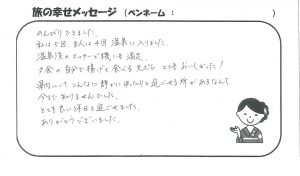 旅の幸せメッセージ （ペンネーム： ）
のんびりできました。
私は5回、主人は4回温泉に入りました。
温泉後のマッサージ機にも満足。
夕食の自分で揚げて食べる天ぷら、とてもおいしかった！
県内にいてこんなに静かにゆったりと過ごせる所があるなんて
今まで知りませんでした。
とても良い休日を過ごせました。
ありがとうございました。